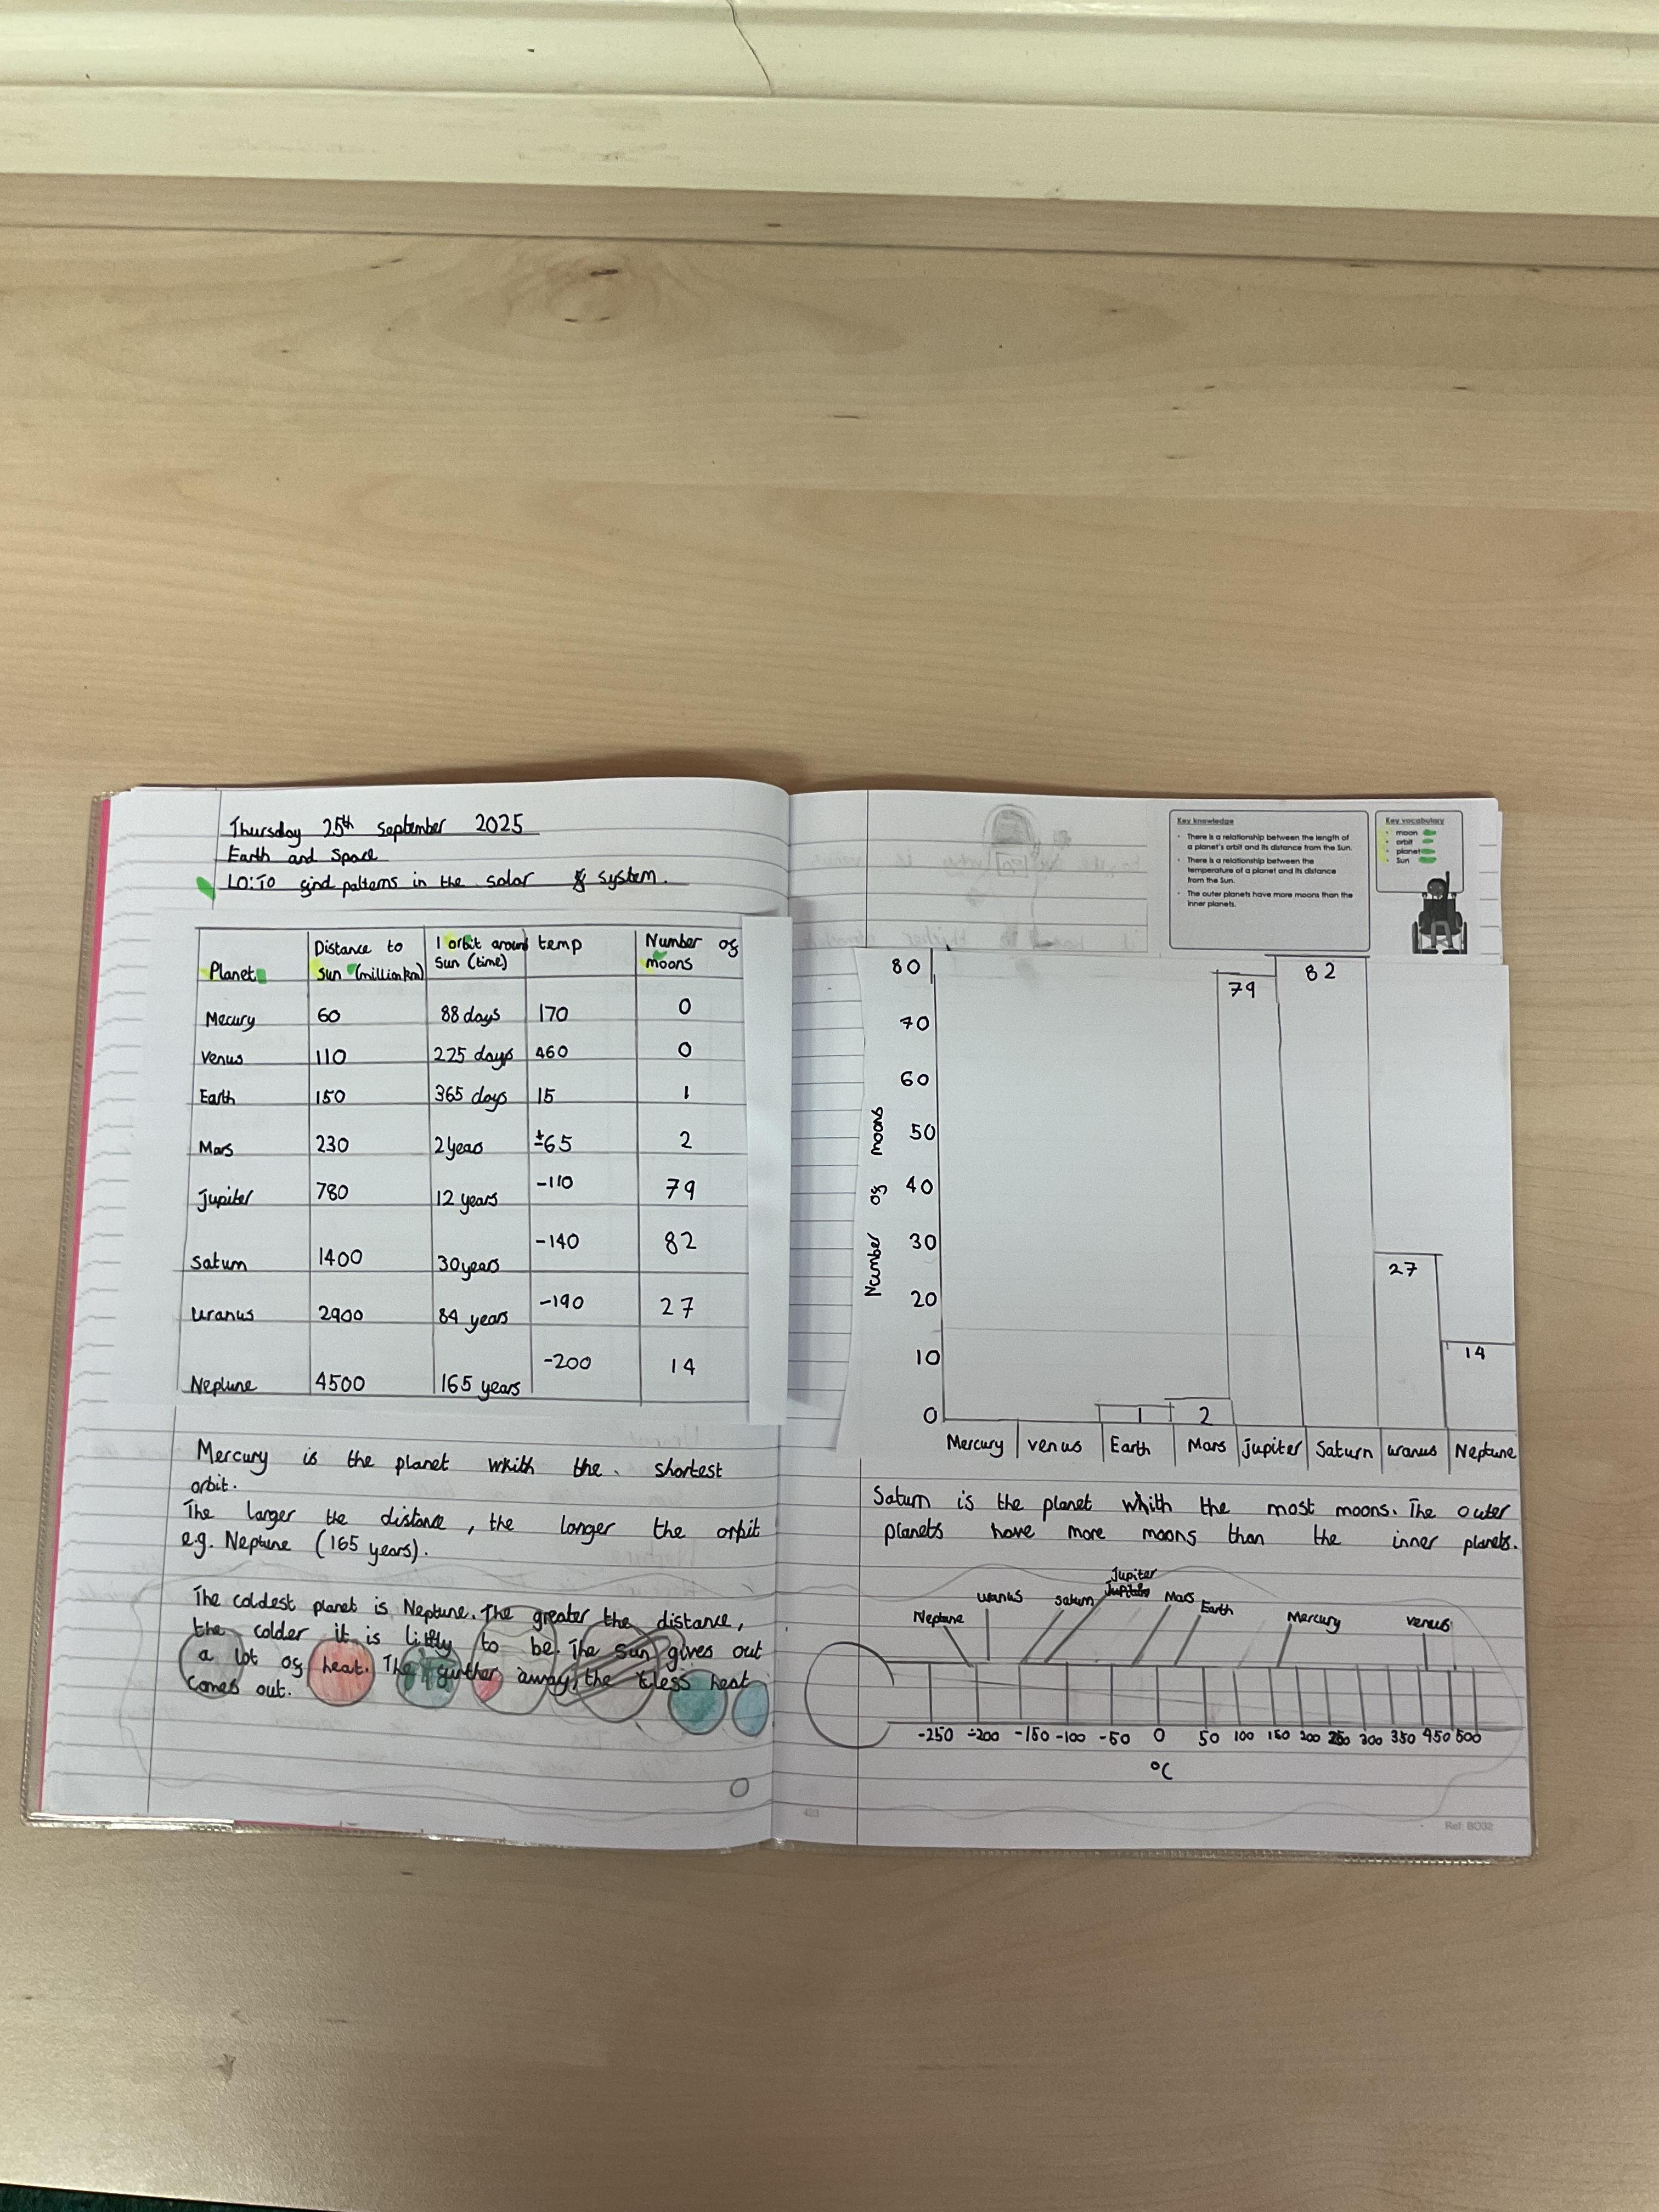 Thursday 25th September 2025
Earth and Space
LO: To find patterns in the solar system.
Planet Distance to sun (million km) 1 orbit around sun (time) temp Number of moons
Mecury 60 88 days 170 0
Venus 110 225 days 460 0
Earth 150 365 days 15 1
Mars 230 2 years 65 2
Jupiter 780 12 years -110 79
Saturn 1400 30 years -140 82
Uranus 2900 84 years -190 27
Neptune 4500 165 years -200 14
Mercury is the planet whith the shortest
orbit.
The larger the distance, the longer the orbit
e.g. Neptune (165 years).
The coldest planet is Neptune. The greater the distance,
the colder it is to be. The Sun gives out
a lot of heat. The further away, the less heat
comes out.
Key knowledge
• There is a relationship between the length of
a planet's orbit and its distance from the Sun.
• There is a relationship between the
temperature of a planet and its distance
from the Sun.
• The outer planets have more moons than the
inner planets.
Key vocabulary
• moon
• orbit
• planet
• Sun
Number of moons
80
70
60
50
40
30
20
10
0
79 82
27
14
1 2
Mercury venus Earth Mars Jupiter Saturn uranus Neptune
Saturn is the planet whith the most moons. The outer
planets have more moons than the inner planets.
Neptune uranus saturn Jupiter Mars Earth Mercury venus
-250 -200 -150 -100 -50 0 50 100 150 200 250 300 350 450 500
°C
423
Ref: BO32